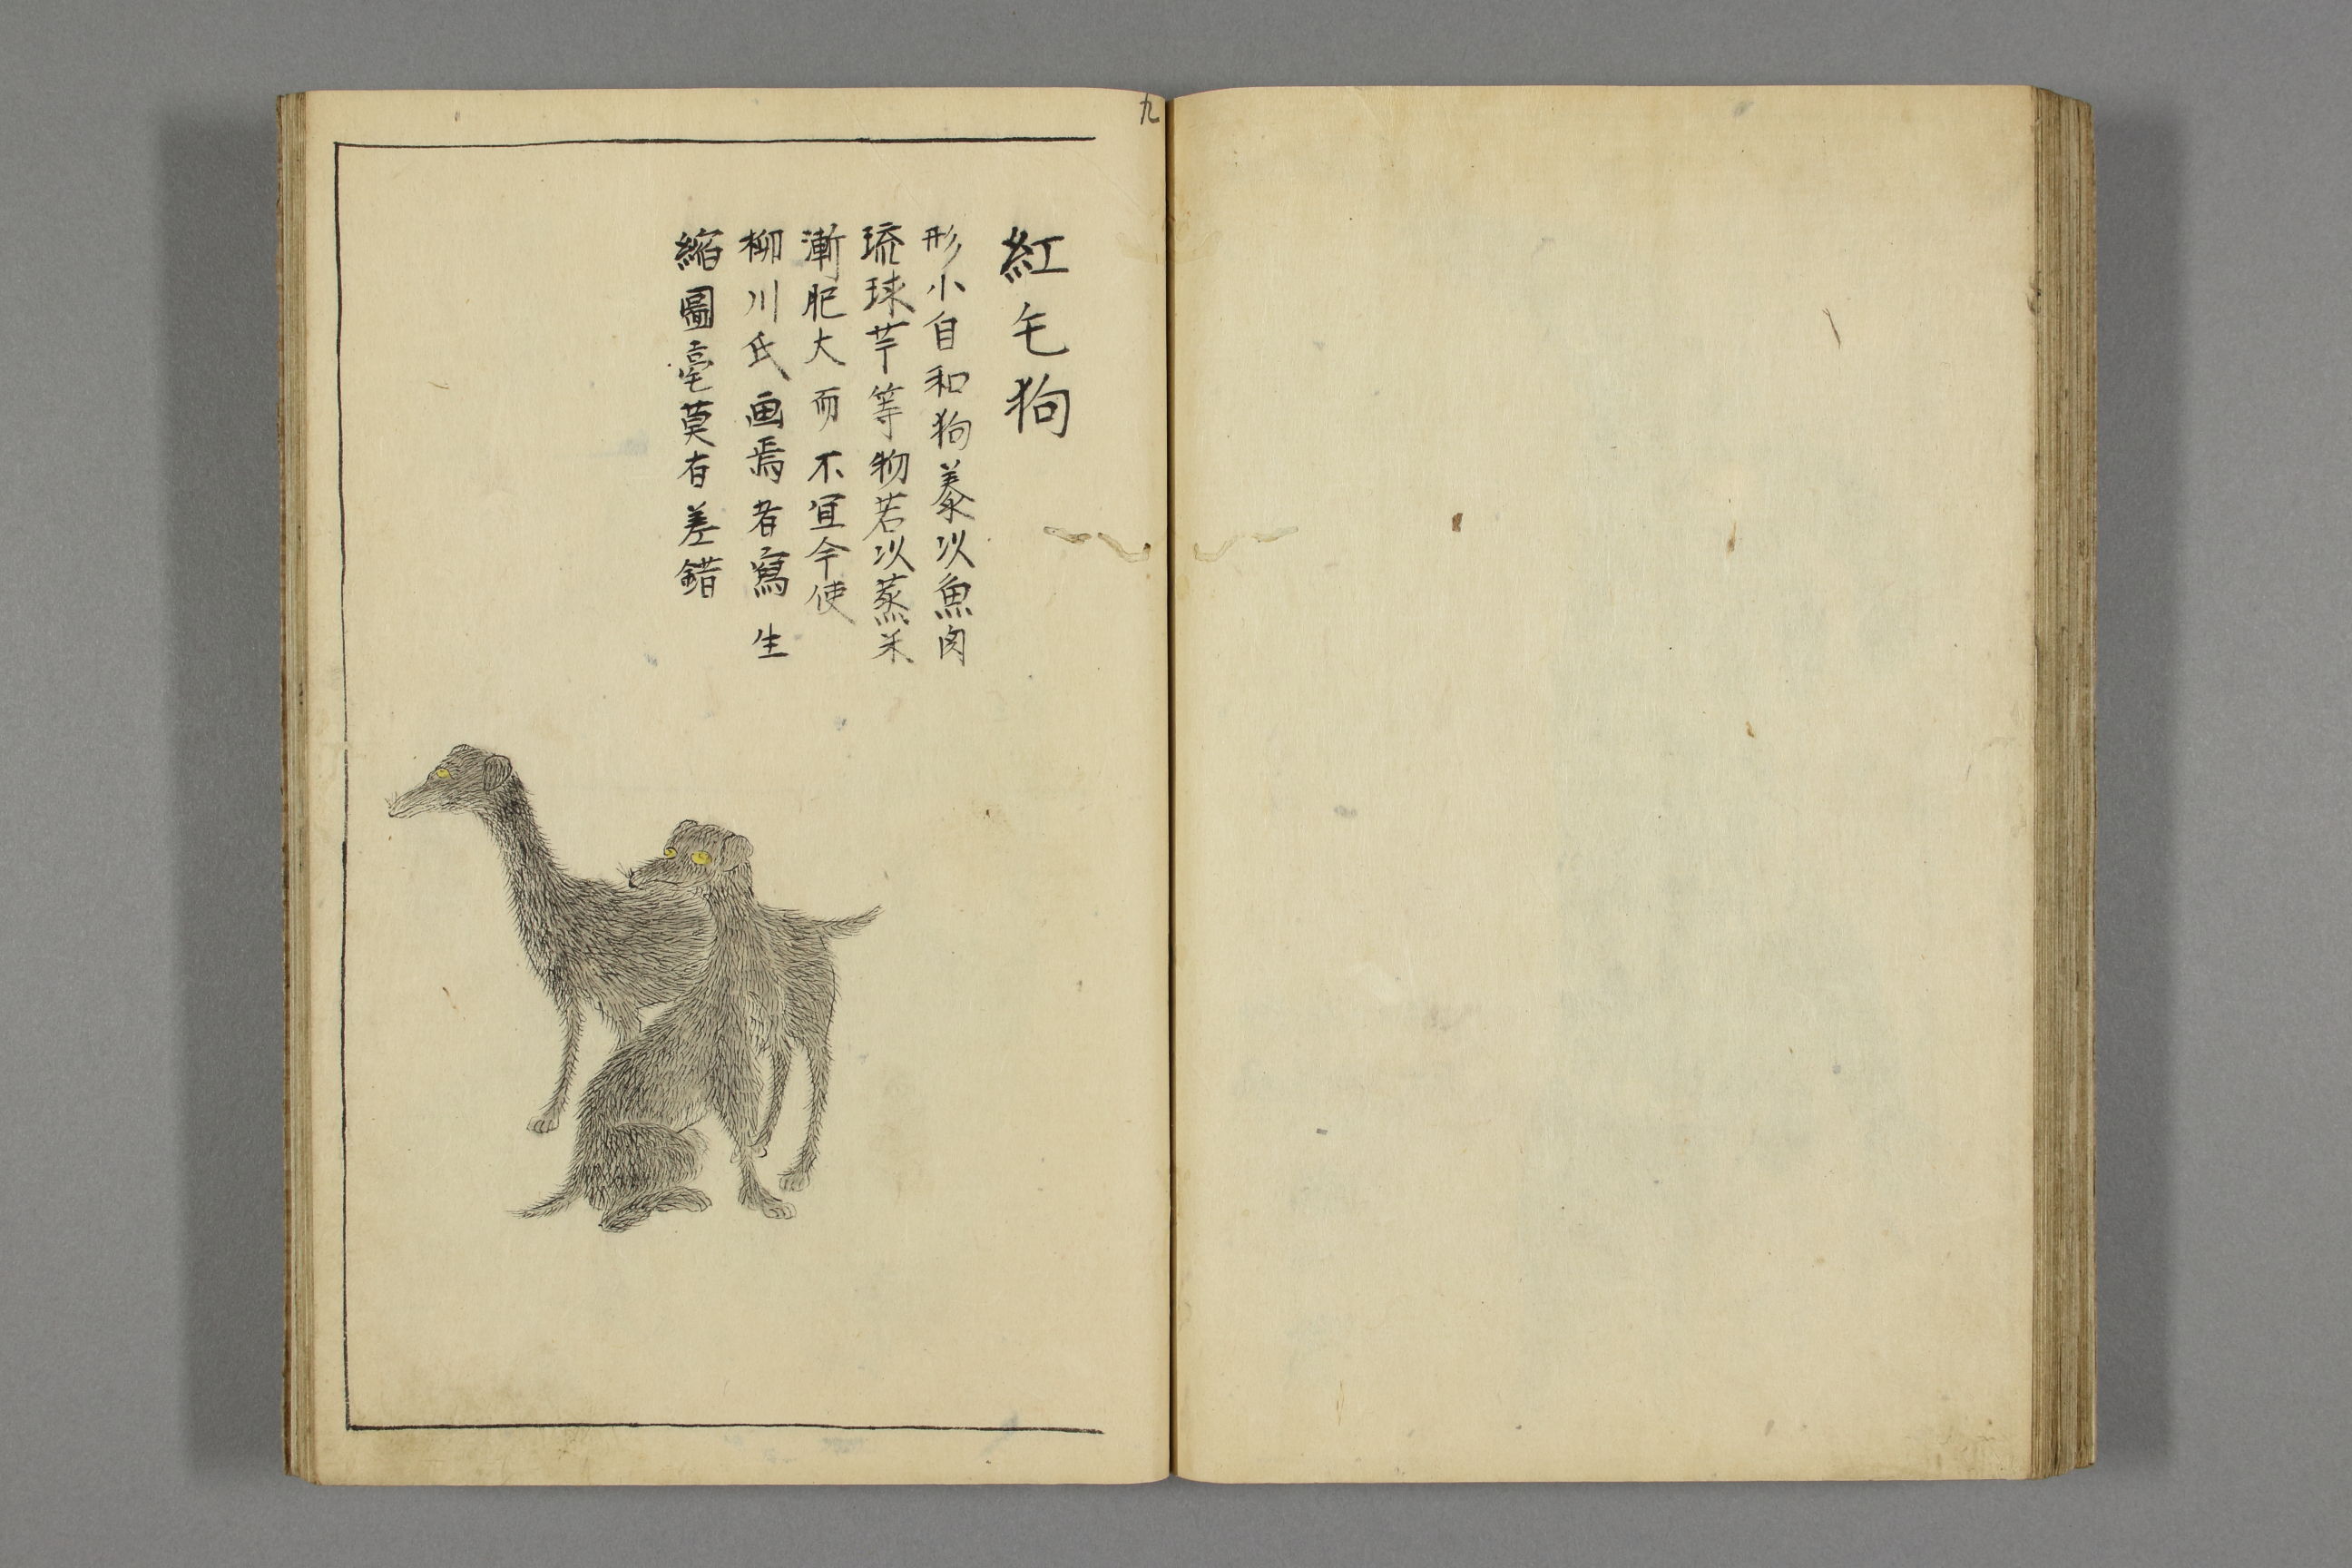 九
紅毛狗
形小自和狗養以魚肉
琉球芋等物若以蒸米
漸肥大而不宜今使
柳川氏画焉者寫生
縮圖毫莫有差錯